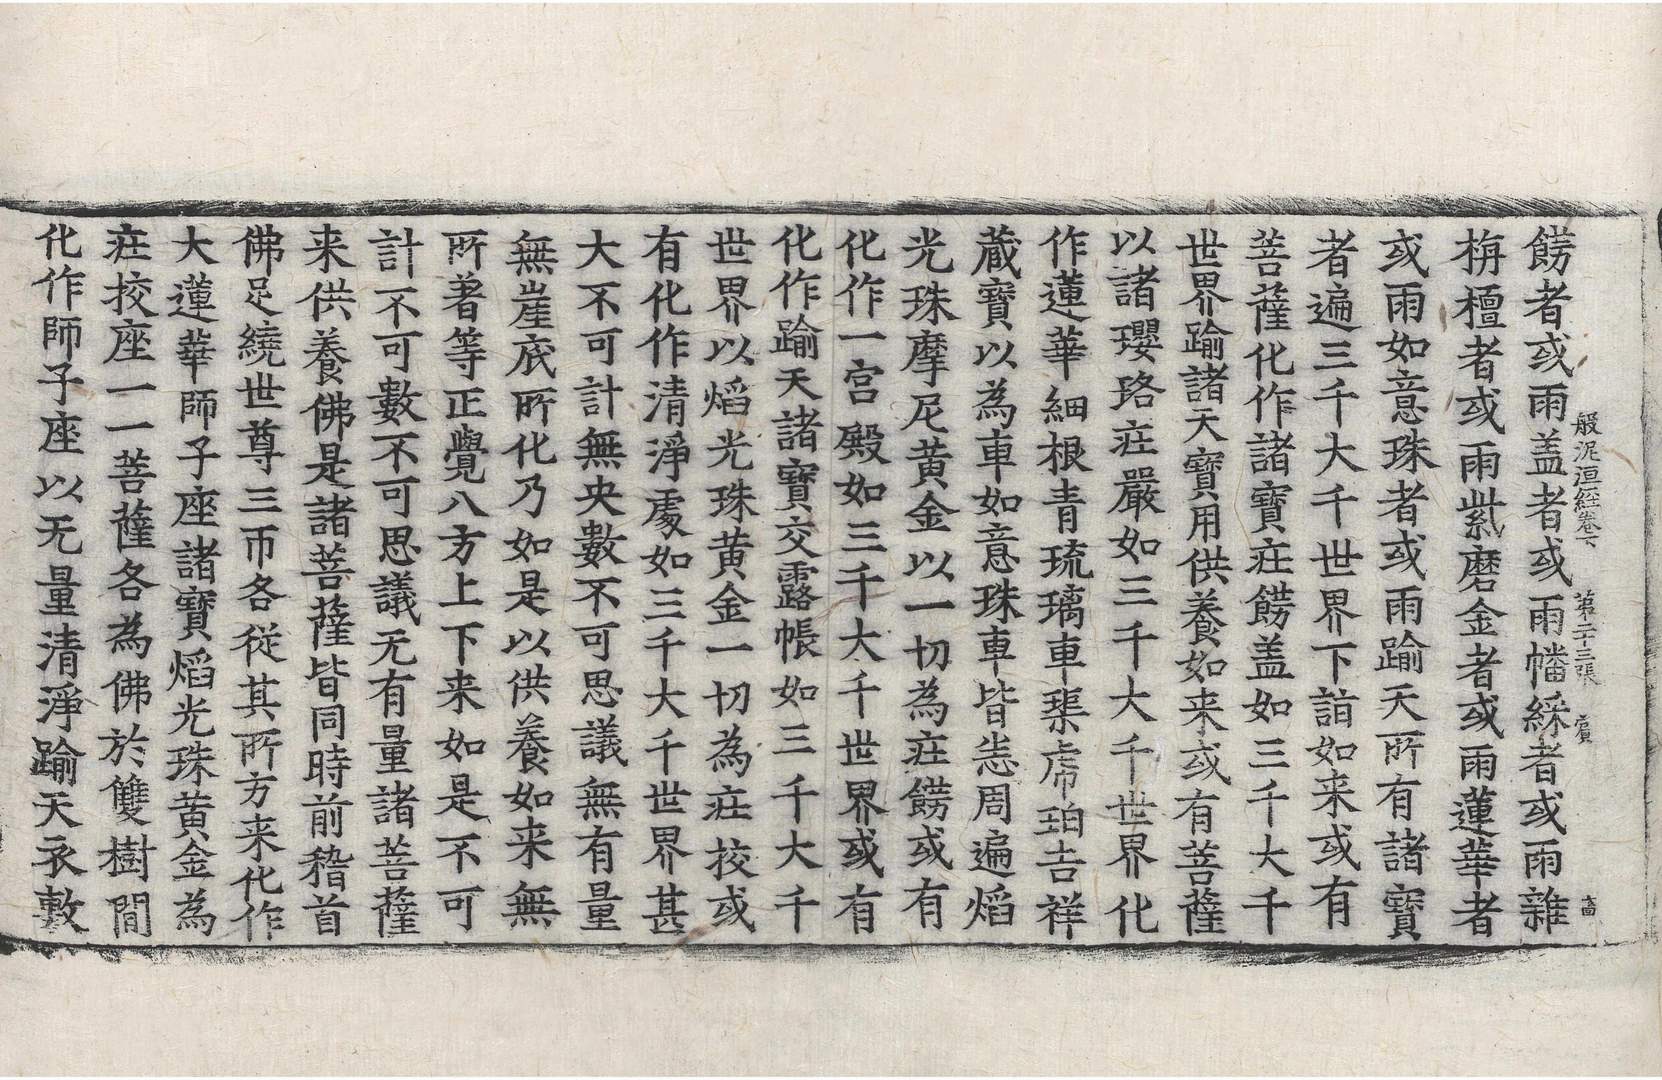 般泥洹經卷下 第二十三張 賓
餝者或雨盖者或雨幡綵者或雨雜
栴檀者或雨紫磨金者或雨蓮華者
或雨如意珠者或雨踰天所有諸寶
者遍三千大千世界下詣如来或有
菩薩化作諸寶莊餝盖如三千大千
世界踰諸天寶用供養如来或有菩薩
以諸瓔珞莊嚴如三千大千世界化
作蓮華細根青琉璃車𤦲虎珀吉祥
藏寶以為車如意珠車皆悉周遍焰
光珠摩尼黄金以一切為莊餝或有
化作一宫殿如三千大千世界或有
化作踰天諸寶交露帳如三千大千
世界以焰光珠黄金一切為莊挍或
有化作清淨處如三千大千世界甚
大不可計無央數不可思議無有量
無崖底所化乃如是以供養如来無
所著等正覺八方上下来如是不可
計不可數不可思議无有量諸菩薩
来供養佛是諸菩薩皆同時前稽首
佛足繞世尊三帀各從其所方来化作
大蓮華師子座諸寶焰光珠黄金為
莊挍座一一菩薩各為佛於雙樹間
化作師子座以无量清淨踰天衣敷